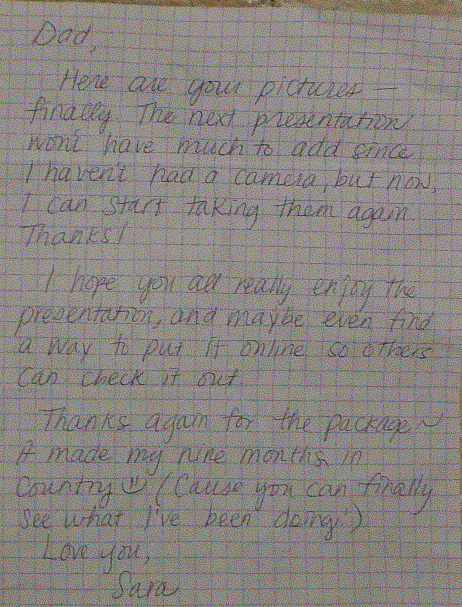 Dad,
Here are your pictures —
finally. The next presentation
won't have much to add since
I haven't had a camera, but now,
I can start taking them again.
Thanks!
I hope you all really enjoy the
presentation, and maybe even find
a way to put it online so others
can check it out.
Thanks again for the package ~
It made my nine months in
Country ☺ (Cause you can finally
see what I've been doing!)
Love you,
Sara